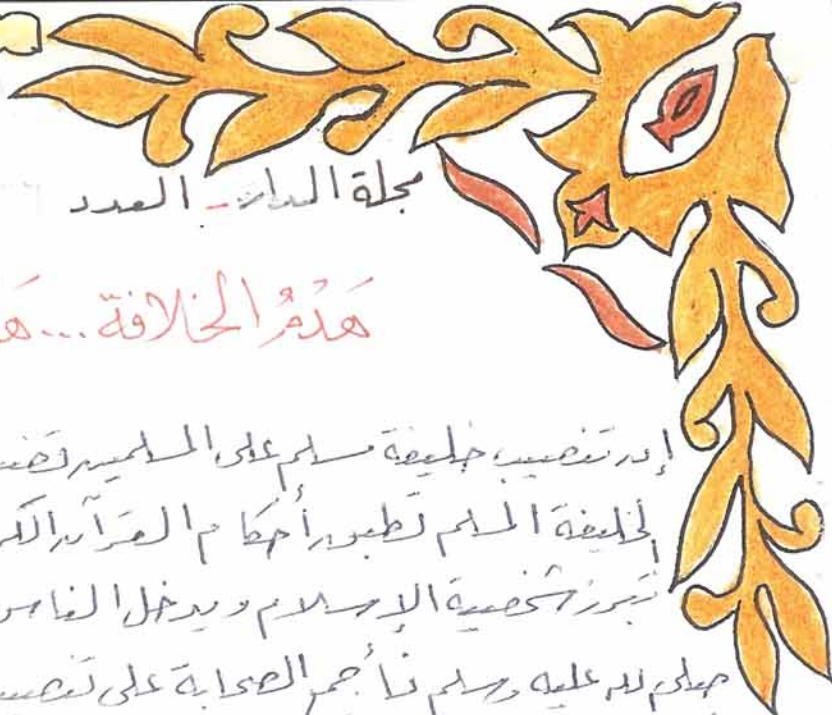 مجلة المدار - العدد
هَدْمُ الخلافة...
إن تنصيب خليفة مسلم على المسلمين
الخليفة المسلم تطبق أحكام القرآن
تبرز شخصية الإسلام ويدخل الناس
صلى لله عليه وسلم فأجمع الصحابة على